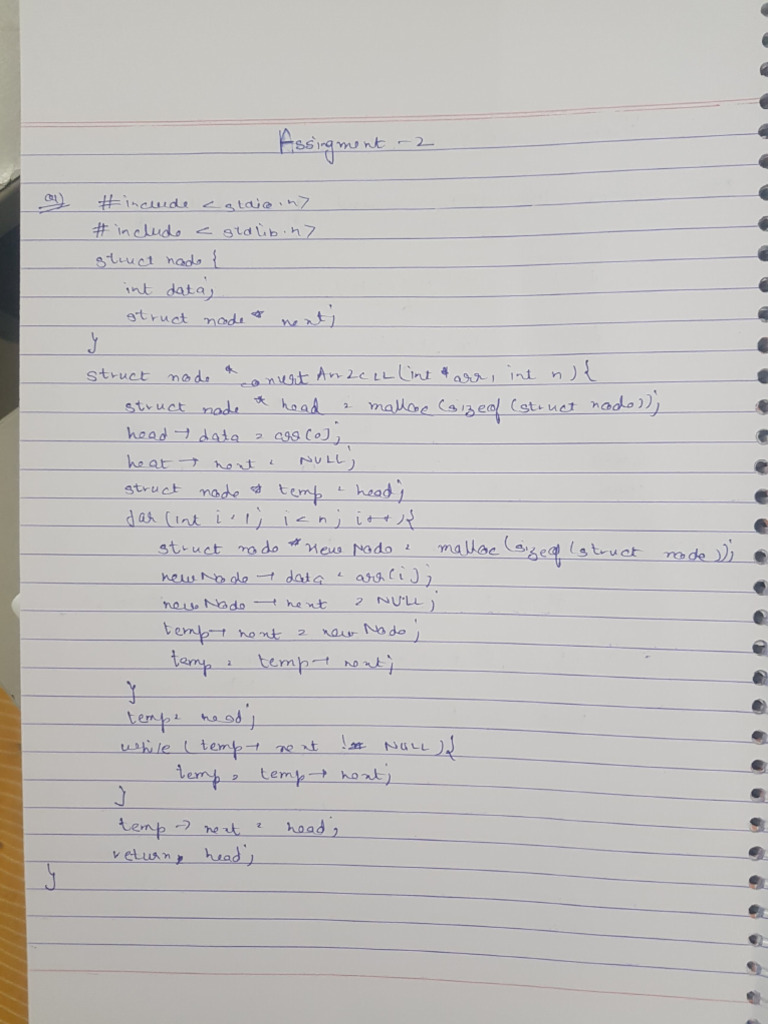 Assingment - 2
Q1) #include <stdio.h>
#include < stdlib.h>
struct node {
int data;
struct node * next;
}
struct node * convertArr2CLL(int *arr, int n){
struct node * head = malloc(sizeof(struct node));
head → data = arr[0];
heat → next = NULL;
struct node * temp = head;
for (int i=1; i<n; i++){
struct node *newNode = malloc(sizeof(struct node));
newNode → data = arr[i];
newNode → next = NULL;
temp→ next = newNode;
temp = temp→ next;
}
temp= head;
while (temp→ next != NULL){
temp = temp→ next;
}
temp → next = head;
return head;
}